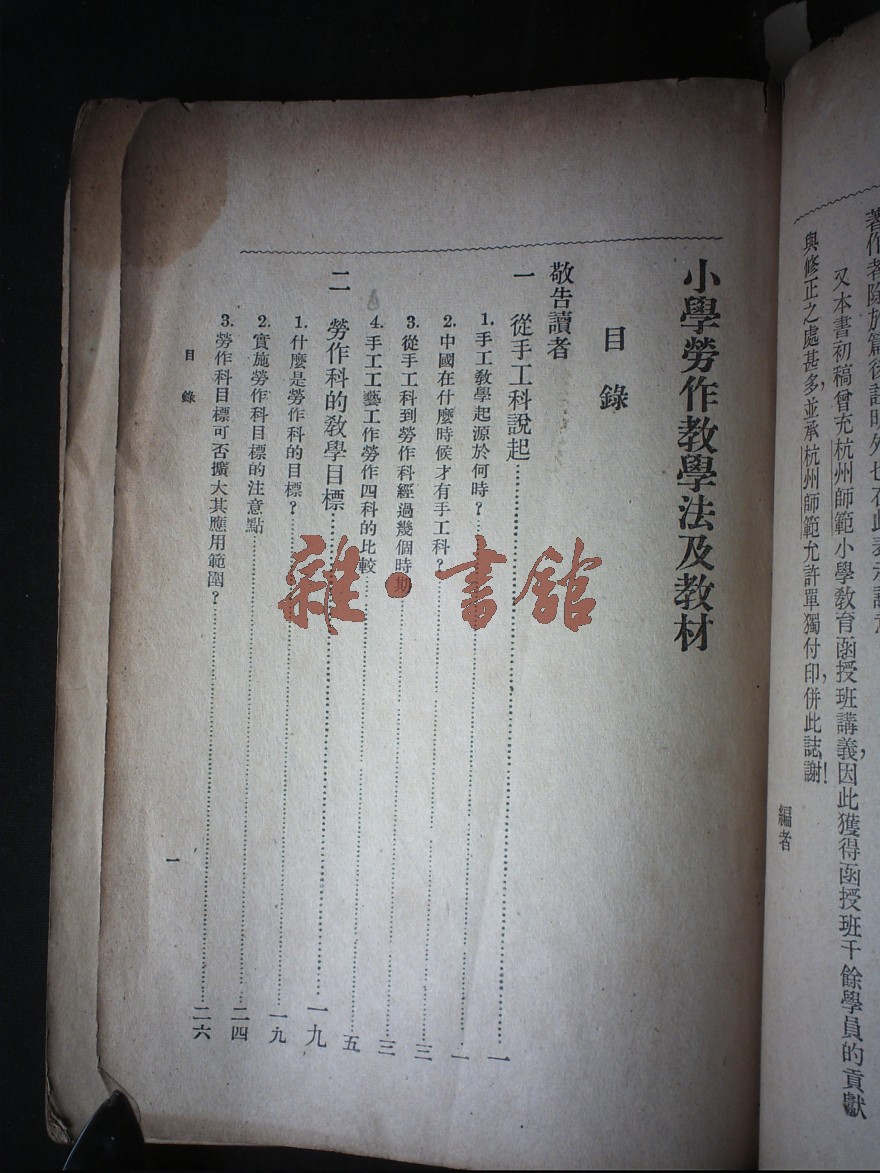 又本書初稿曾充杭州師範小學敎育函授班講義,因此獲得函授班千餘學員的貢獻
與修正之處甚多,並承杭州師範允許單獨付印,併此誌謝!
編者
小學勞作敎學法及敎材
目錄
敬告讀者
一 從手工科說起……一
1. 手工敎學起源於何時?……一
2. 中國在什麼時候才有手工科?……三
3. 從手工科到勞作科經過幾個時期……三
4. 手工工藝工作勞作四科的比較……五
二 勞作科的敎學目標……一九
1. 什麼是勞作科的目標?……一九
2. 實施勞作科目標的注意點……二四
3. 勞作科目標可否擴大其應用範圍?……二六
目錄
一
雜·書館